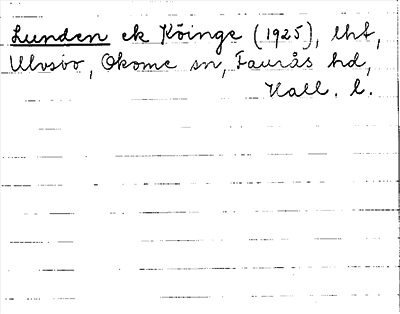 Lunden ek Köinge (1925), lht,
Ulvsbo, Okome sn, Faurås hd,
Hall. l.